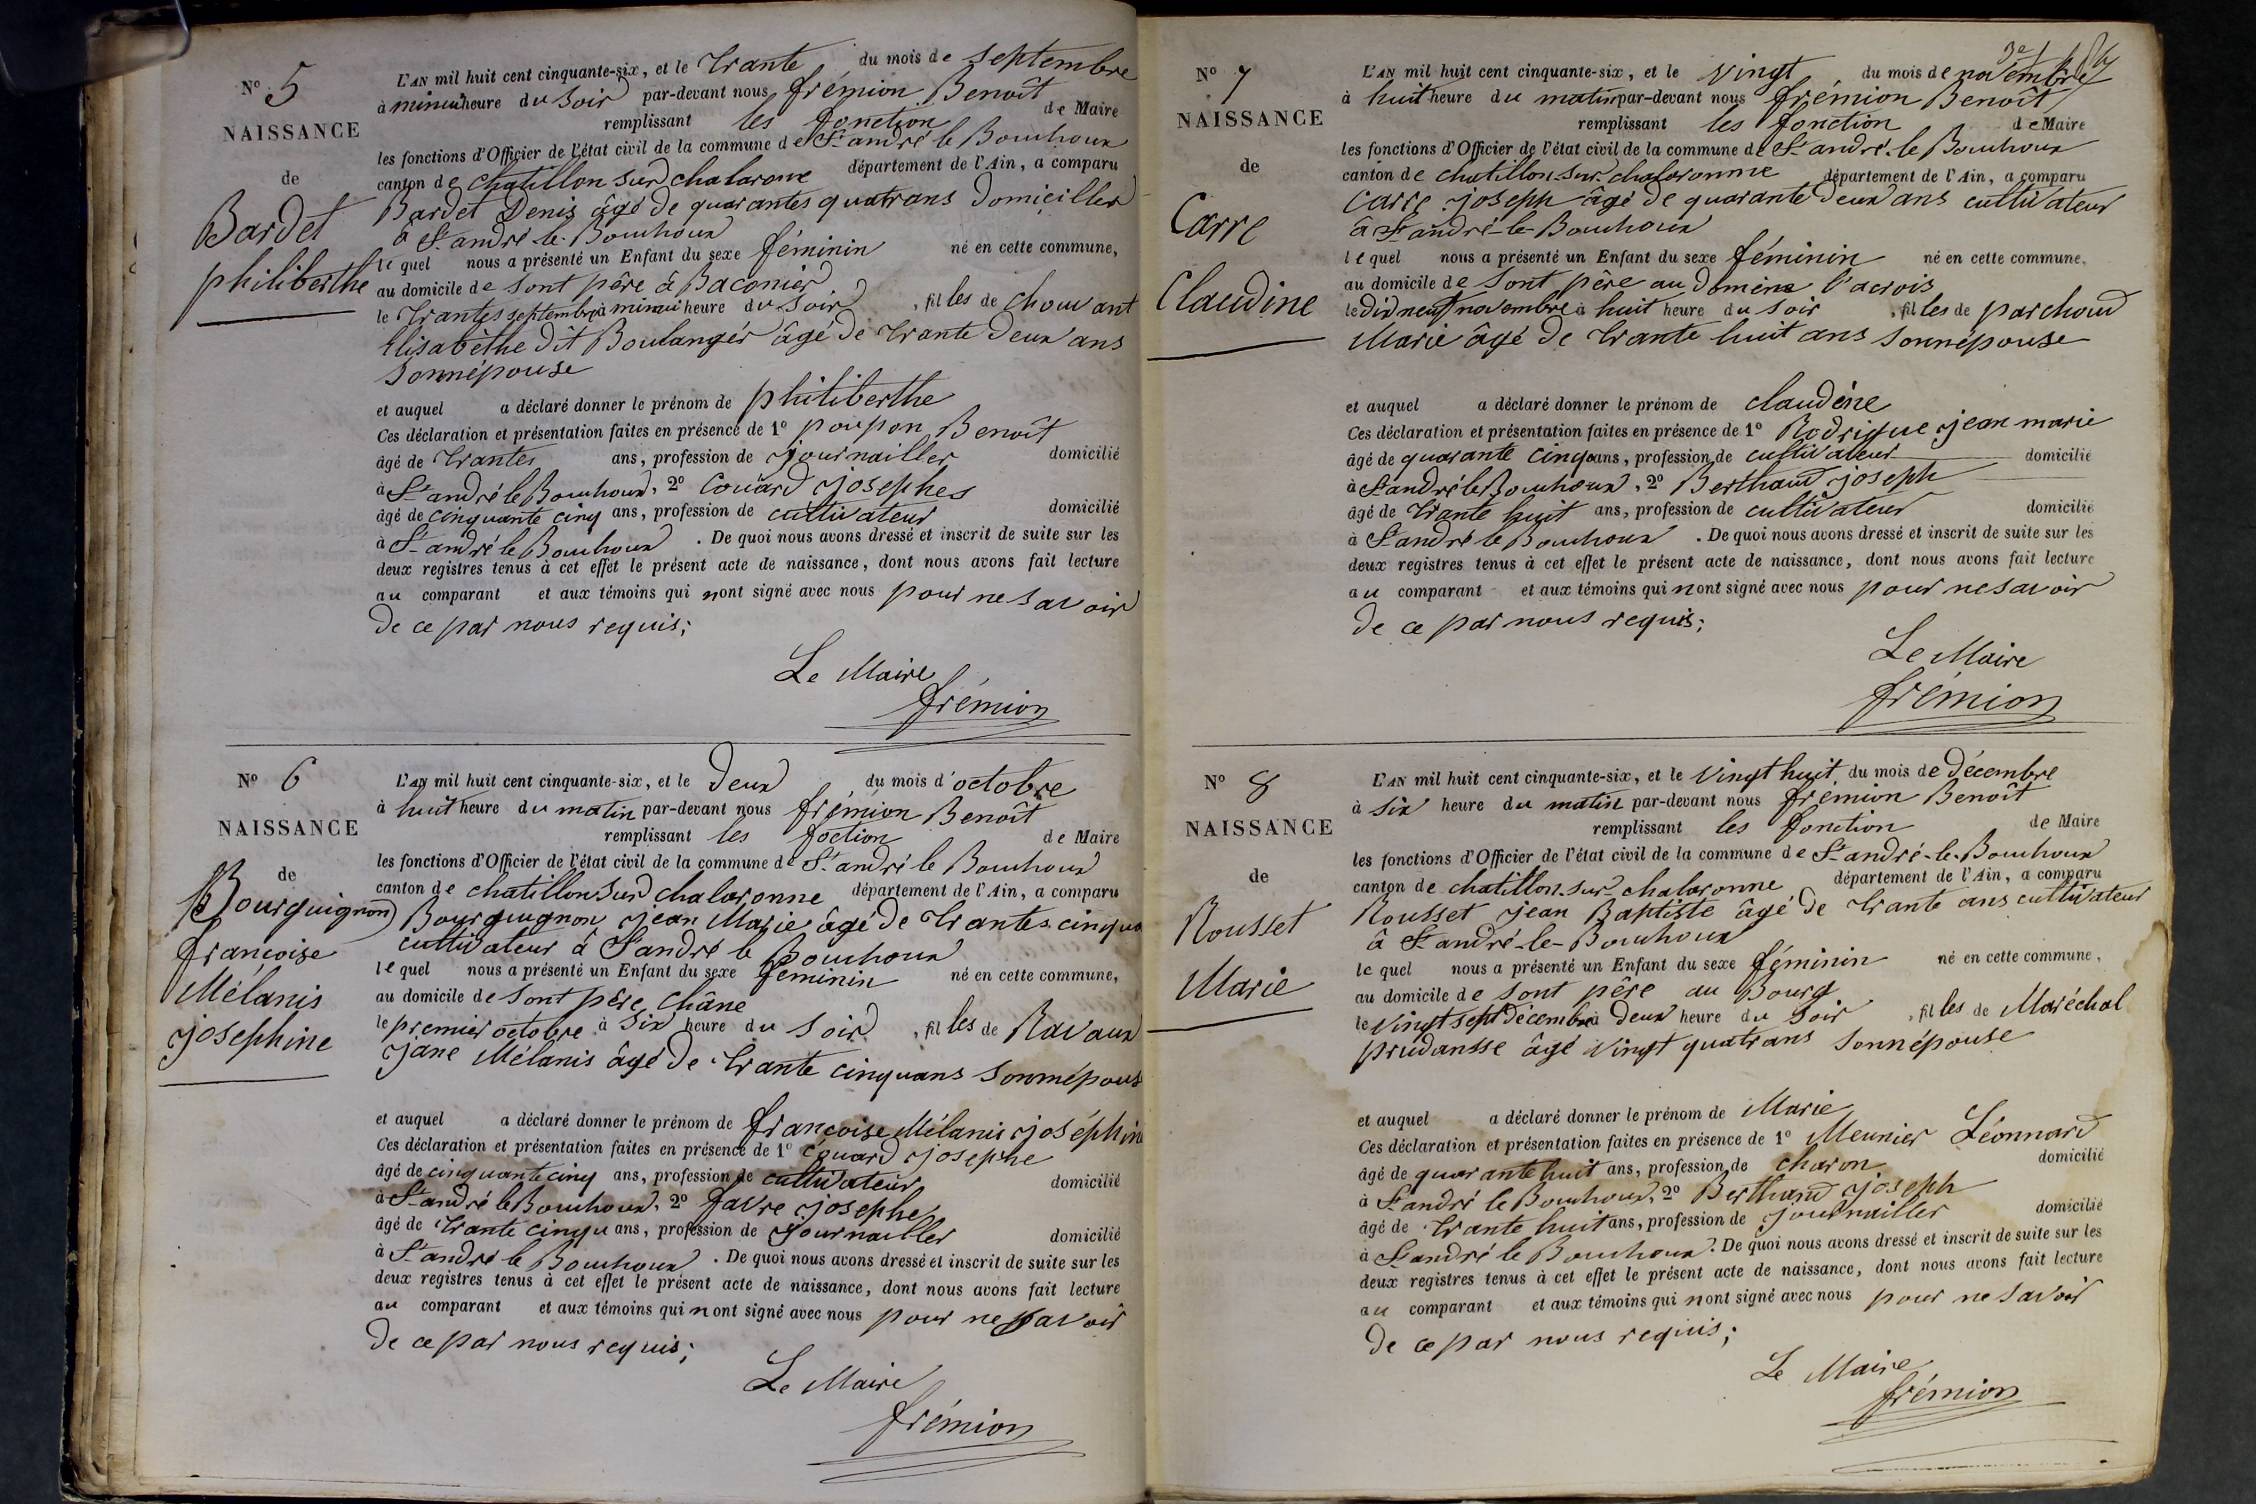 N° 5
NAISSANCE
de
Bardet
philiberthe
L'AN mil huit cent cinquante-six, et le trante du mois de septembre
à minui heure du soir par-devant nous frémion Benoît
remplissant les fonction de Maire
les fonctions d'Officier de l'état civil de la commune de St andré le Bouchoux
canton de chatillon sur chalarone département de l'Ain, a comparu
Bardet Denis âgé de quarantes quatrans domiciller
à St andré le Bouchoux
le quel nous a présenté un Enfant du sexe féminin né en cette commune,
au domicile de sont père à Baconier
le trantes septembre à minui heure du soir, fil les de chouvant
Elisabèthe dit Boulangér âgé de trante deux ans
sonnépouse
et auquel a déclaré donner le prénom de philiberthe
Ces déclaration et présentation faites en présence de 1° poupon Benoît
âgé de trantes ans, profession de journailler domicilié
à St andré le Bouchoux, 2° Couard josephes
âgé de cinquante cinq ans, profession de cultivateur domicilié
à St andré le Bouchoux. De quoi nous avons dressé et inscrit de suite sur les
deux registres tenus à cet effet le présent acte de naissance, dont nous avons fait lecture
au comparant et aux témoins qui nont signé avec nous pour ne savoir
de ce par nous requis;
Le Maire
frémion
N° 6
NAISSANCE
de
Bourguignon
françoise
Mélanis
josephine
L'AN mil huit cent cinquante-six, et le deux du mois d'octobre
à huit heure du matin par-devant nous frémion Benoît
remplissant les foction de Maire
les fonctions d'Officier de l'état civil de la commune de St andré le Bouchoux
canton de chatillon sur chalaronne département de l'Ain, a comparu
Bourguignon jean Marie âgé de trantes cinqua
cultivateur à St andré le Bouchoux
le quel nous a présenté un Enfant du sexe féminin né en cette commune,
au domicile de sont père châne
le premier octobre à six heure du soir, fil les de Ravaux
jane Mélanis âgé de trante cinquans sonnépouse
et auquel a déclaré donner le prénom de françoise Mélanis joséphin
Ces déclaration et présentation faites en présence de 1° couard josephe
âgé de cinquante cinq ans, profession de cultivateur domicilié
à St andré le Bouchoux, 2° favre josephe
âgé de trante cinqu ans, profession de journailler domicilié
à St andré le Bouchoux. De quoi nous avons dressé et inscrit de suite sur les
deux registres tenus à cet effet le présent acte de naissance, dont nous avons fait lecture
au comparant et aux témoins qui nont signé avec nous pour ne savoir
de ce par nous requis;
Le Maire
frémion
N° 7
NAISSANCE
de
Carre
Claudine
L'AN mil huit cent cinquante-six, et le vingt du mois de novembre
à huit heure du matin par-devant nous frémion Benoît
remplissant les fonction de Maire
les fonctions d'Officier de l'état civil de la commune de St andré-le Bouchoux
canton de chatillon-sur-chalaronne département de l'Ain, a comparu
Carre joseph âgé de quarante deux ans cultivateur
à St andré-le-Bouchoux
le quel nous a présenté un Enfant du sexe féminin né en cette commune,
au domicile de sont père au domène l'acrois
le didneuf novembre à huit heure du soir, fil les de parchoud
Marie âgé de trante huit ans sonnépouse
et auquel a déclaré donner le prénom de claudéne
Ces déclaration et présentation faites en présence de 1° Rodrigue jean marie
âgé de quarante cinq ans, profession de cultivateur domicilié
à St andré le Bouchoux, 2° Berthaud joseph
âgé de trante huit ans, profession de cultivateur domicilié
à St andré le Bouchoux. De quoi nous avons dressé et inscrit de suite sur les
deux registres tenus à cet effet le présent acte de naissance, dont nous avons fait lecture
au comparant et aux témoins qui nont signé avec nous pour ne savoir
de ce par nous requis;
Le Maire
frémion
N° 8
NAISSANCE
de
Rousset
Marie
L'AN mil huit cent cinquante-six, et le vingt huit du mois de décembre
à six heure du matin par-devant nous frémion Benoît
remplissant les fonction de Maire
les fonctions d'Officier de l'état civil de la commune de St andré-le-Bouchoux
canton de chatillon-sur-chalaronne département de l'Ain, a comparu
Rousset jean Baptiste âgé de trante ans cultivateur
à St andré-le-Bouchoux
le quel nous a présenté un Enfant du sexe féminin né en cette commune,
au domicile de sont père au Bourg
le vingt sept décembre à deux heure du soir, fil les de Maréchal
prudansse âgé vingt quatrans sonnépouse
et auquel a déclaré donner le prénom de Marie
Ces déclaration et présentation faites en présence de 1° Meunier Léonnard
âgé de quarante huit ans, profession de charon domicilié
à St andré le Bouchoux, 2° Berthaud joseph
âgé de trante huit ans, profession de journailler domicilié
à St andré le Bouchoux. De quoi nous avons dressé et inscrit de suite sur les
deux registres tenus à cet effet le présent acte de naissance, dont nous avons fait lecture
au comparant et aux témoins qui nont signé avec nous pour ne savoir
de ce par nous requis;
Le Maire
frémion